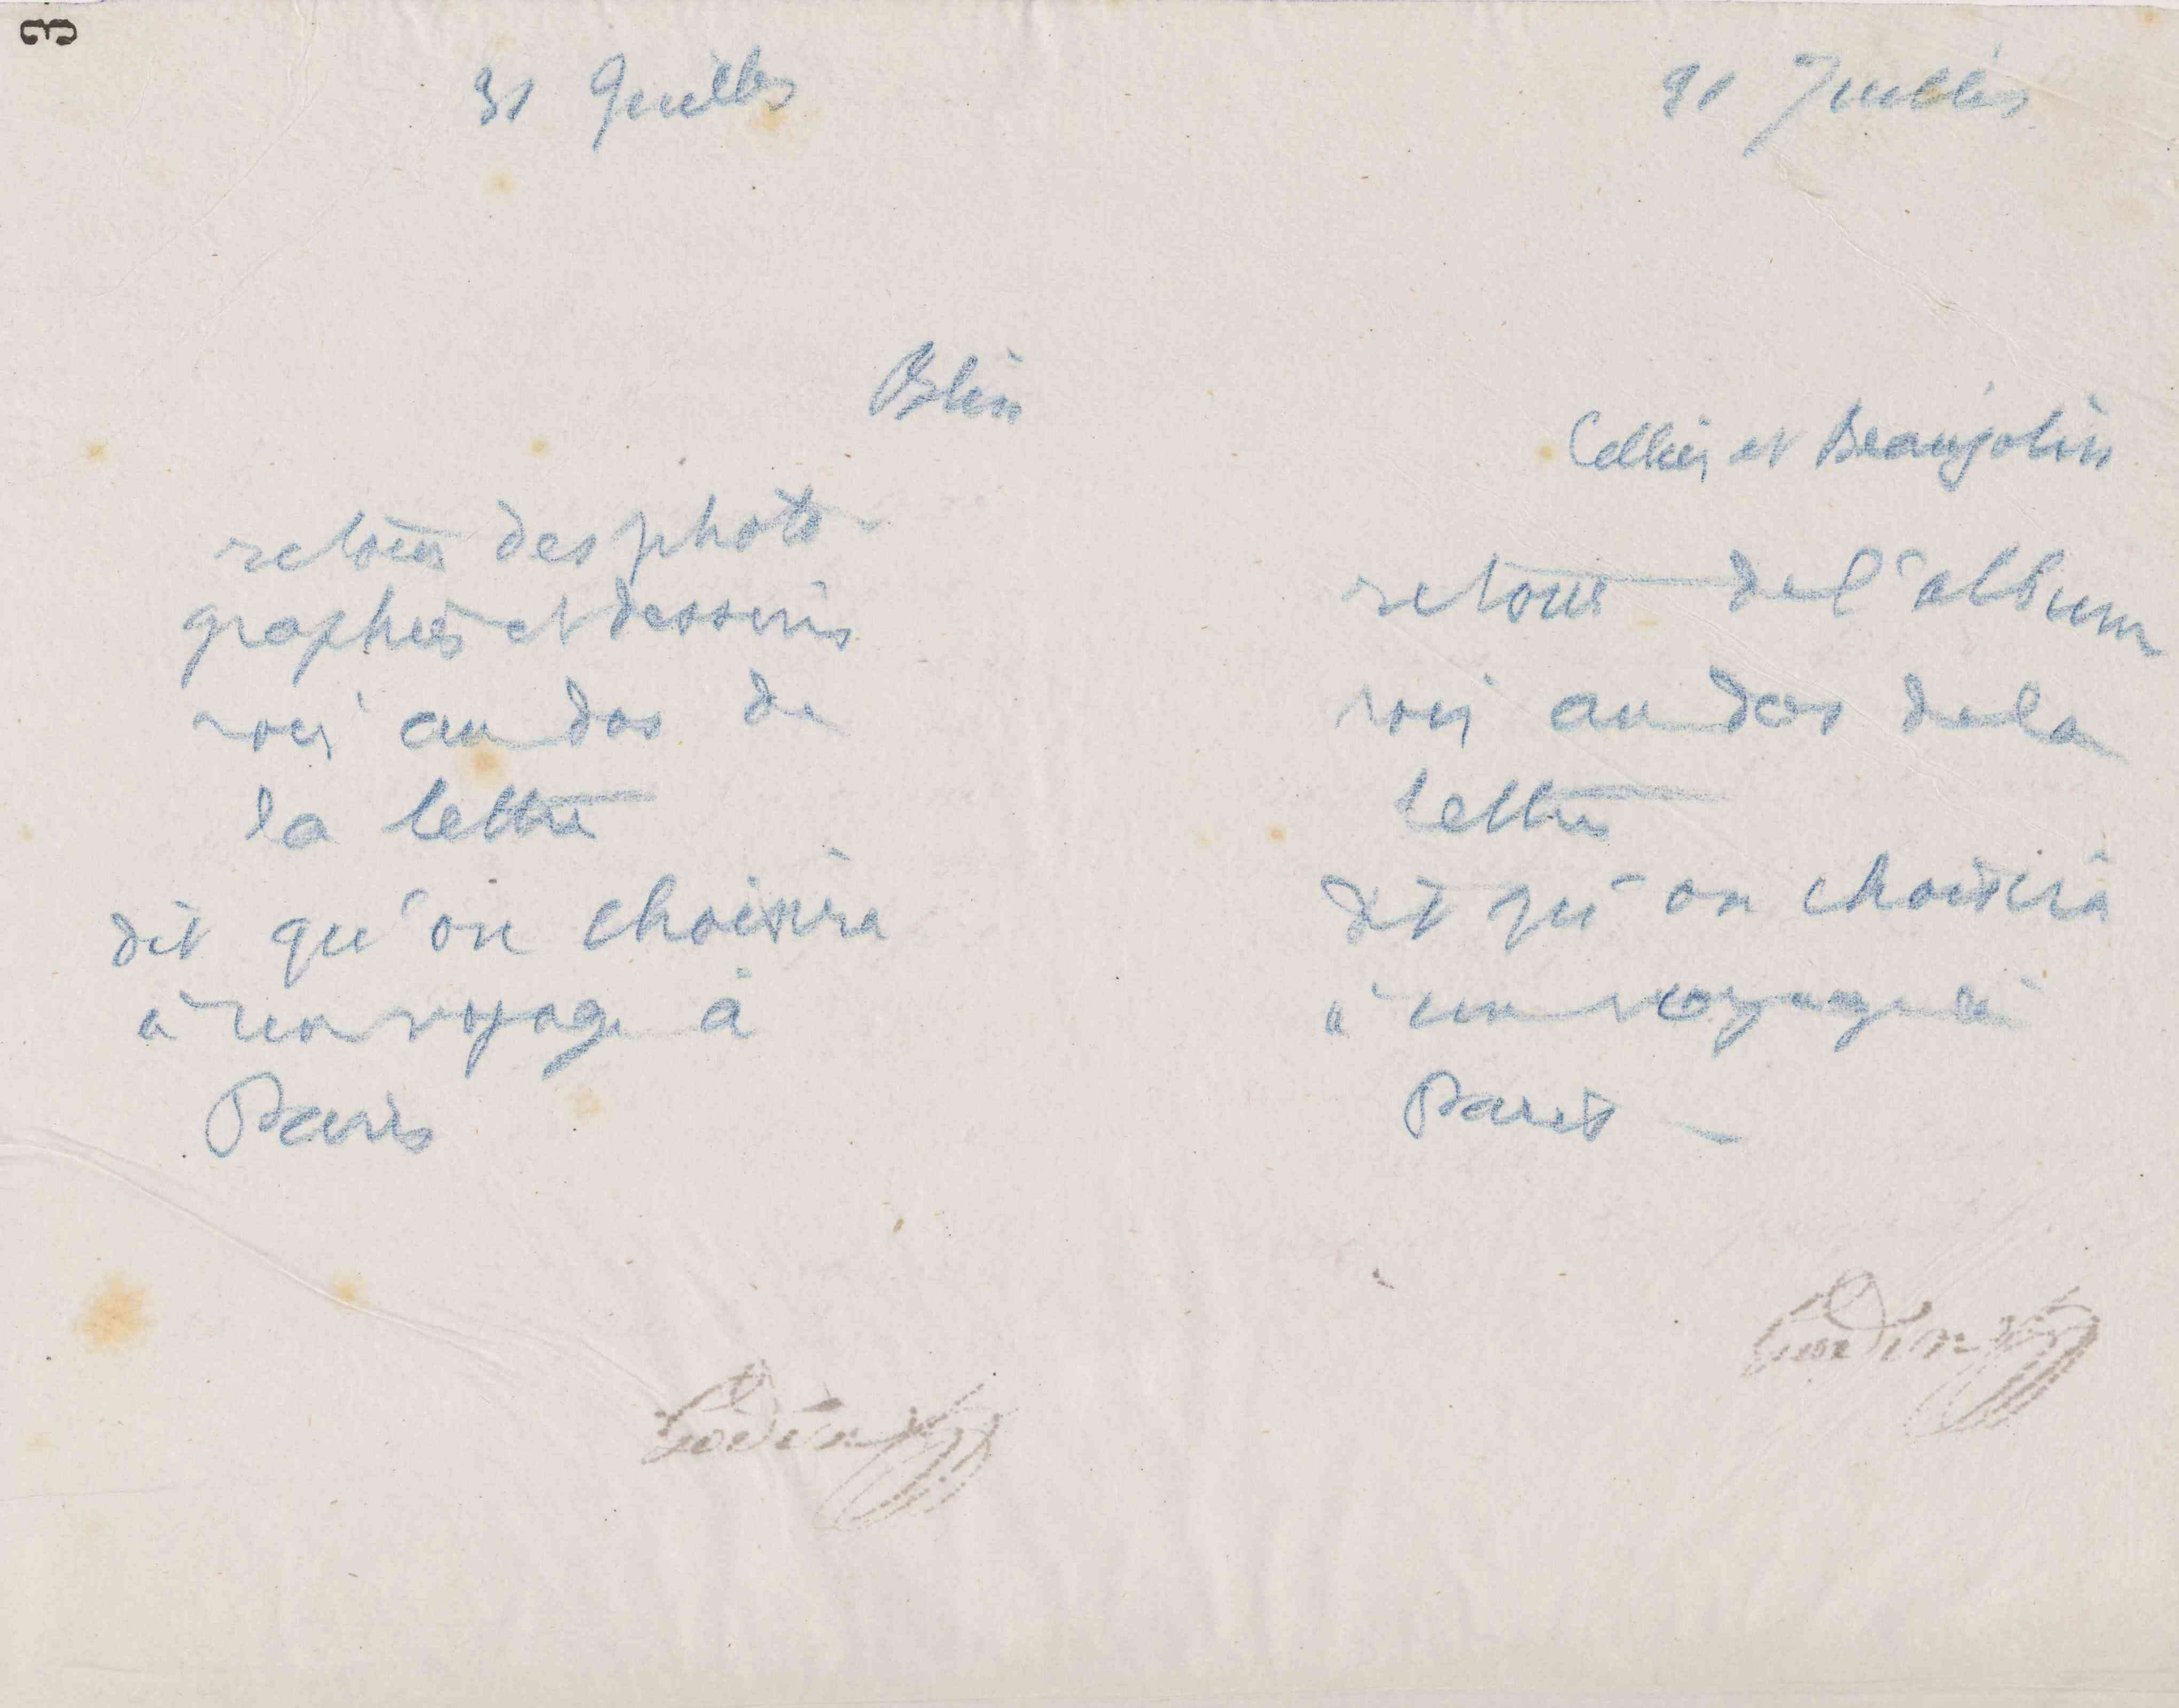 3
31 Juillet
Blin
retour des photo-
graphies et dessins
voir au dos de
la lettre
dit qu'on choisira
à un voyage à
Paris
Godin
31 Juillet
Cellier et Beaujolin
retour de l'album
voir au dos de la
lettre
dit qu'on choisira
à un voyage à
Paris —
Godin